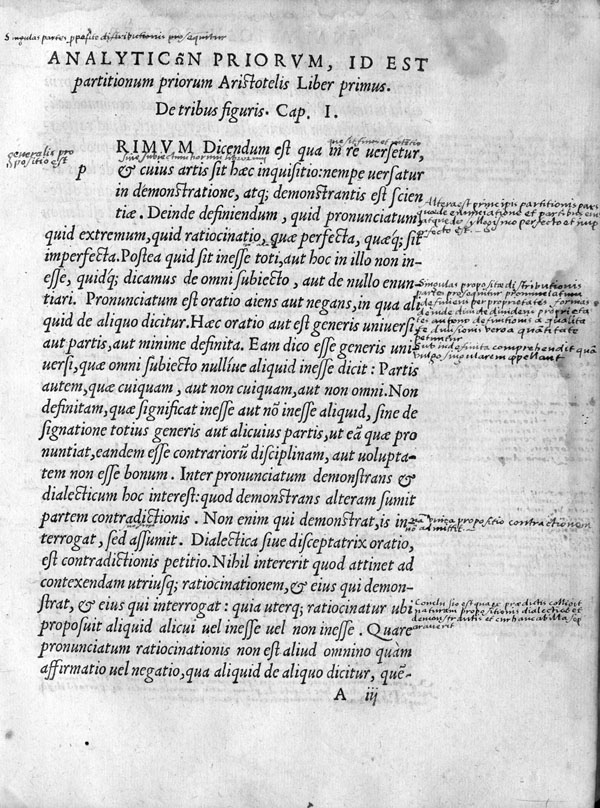 Singulas partes proposito distributionis prosequitur
ANALYTICωN PRIORVM, ID EST
partitionum priorum Aristotelis Liber primus.
De tribus figuris. Cap. I.
generalis pro
positio est
P RIMVM Dicendum est qua in re uersetur,
& cuius artis sit hæc inquisitio: nempe uersatur
in demonstratione, atq; demonstrantis est scien
tiæ. Deinde definiendum, quid pronunciatum,
quid extremum, quid ratiocinatio, quæ perfecta, quæq; sit
imperfecta. Postea quid sit inesse toti, aut hoc in illo non in-
esse, quidq; dicamus de omni subiecto, aut de nullo enun-
tiari. Pronunciatum est oratio aiens aut negans, in qua ali
quid de aliquo dicitur. Hæc oratio aut est generis uniuersi,
aut partis, aut minime definita. Eam dico esse generis uni-
uersi, quæ omni subiecto nulliue aliquid inesse dicit: Partis
autem, quæ cuiquam, aut non cuiquam, aut non omni. Non
definitam, quæ significat inesse aut nõ inesse aliquid, sine de
signatione totius generis aut alicuius partis, ut eã quæ pro
nuntiat, eandem esse contrariorũ disciplinam, aut uolupta-
tem non esse bonum. Inter pronunciatum demonstrans &
dialecticum hoc interest: quod demonstrans alteram sumit
partem contradictionis. Non enim qui demonstrat, is in-
terrogat, sed assumit. Dialectica siue disceptatrix oratio,
est contradictionis petitio. Nihil intererit quod attinet ad
contexendam utriusq; ratiocinationem, & eius qui demon-
strat, & eius qui interrogat: quia uterq; ratiocinatur ubi
proposuit aliquid alicui uel inesse uel non inesse. Quare
pronunciatum ratiocinationis non est aliud omnino quàm
affirmatio uel negatio, qua aliquid de aliquo dicitur, quē-
A iij
Altera est principii partitionis pars
quæ de enunciatione et partibus
syllogismo perfecto et imp
erfecto est.
Singulas propositæ distributionis
partes prosequitur pronunciatum
definiens per proprietates formas
deinde diuidens
diuisionis vero a quãtitate
petuntur
sub indefinita comprehendit quã
vulgo singularem appellant
propositio contractionem
nõ admittit
Conclusio est qua ex prædictis colligit
naturam propositionis dialecticæ et